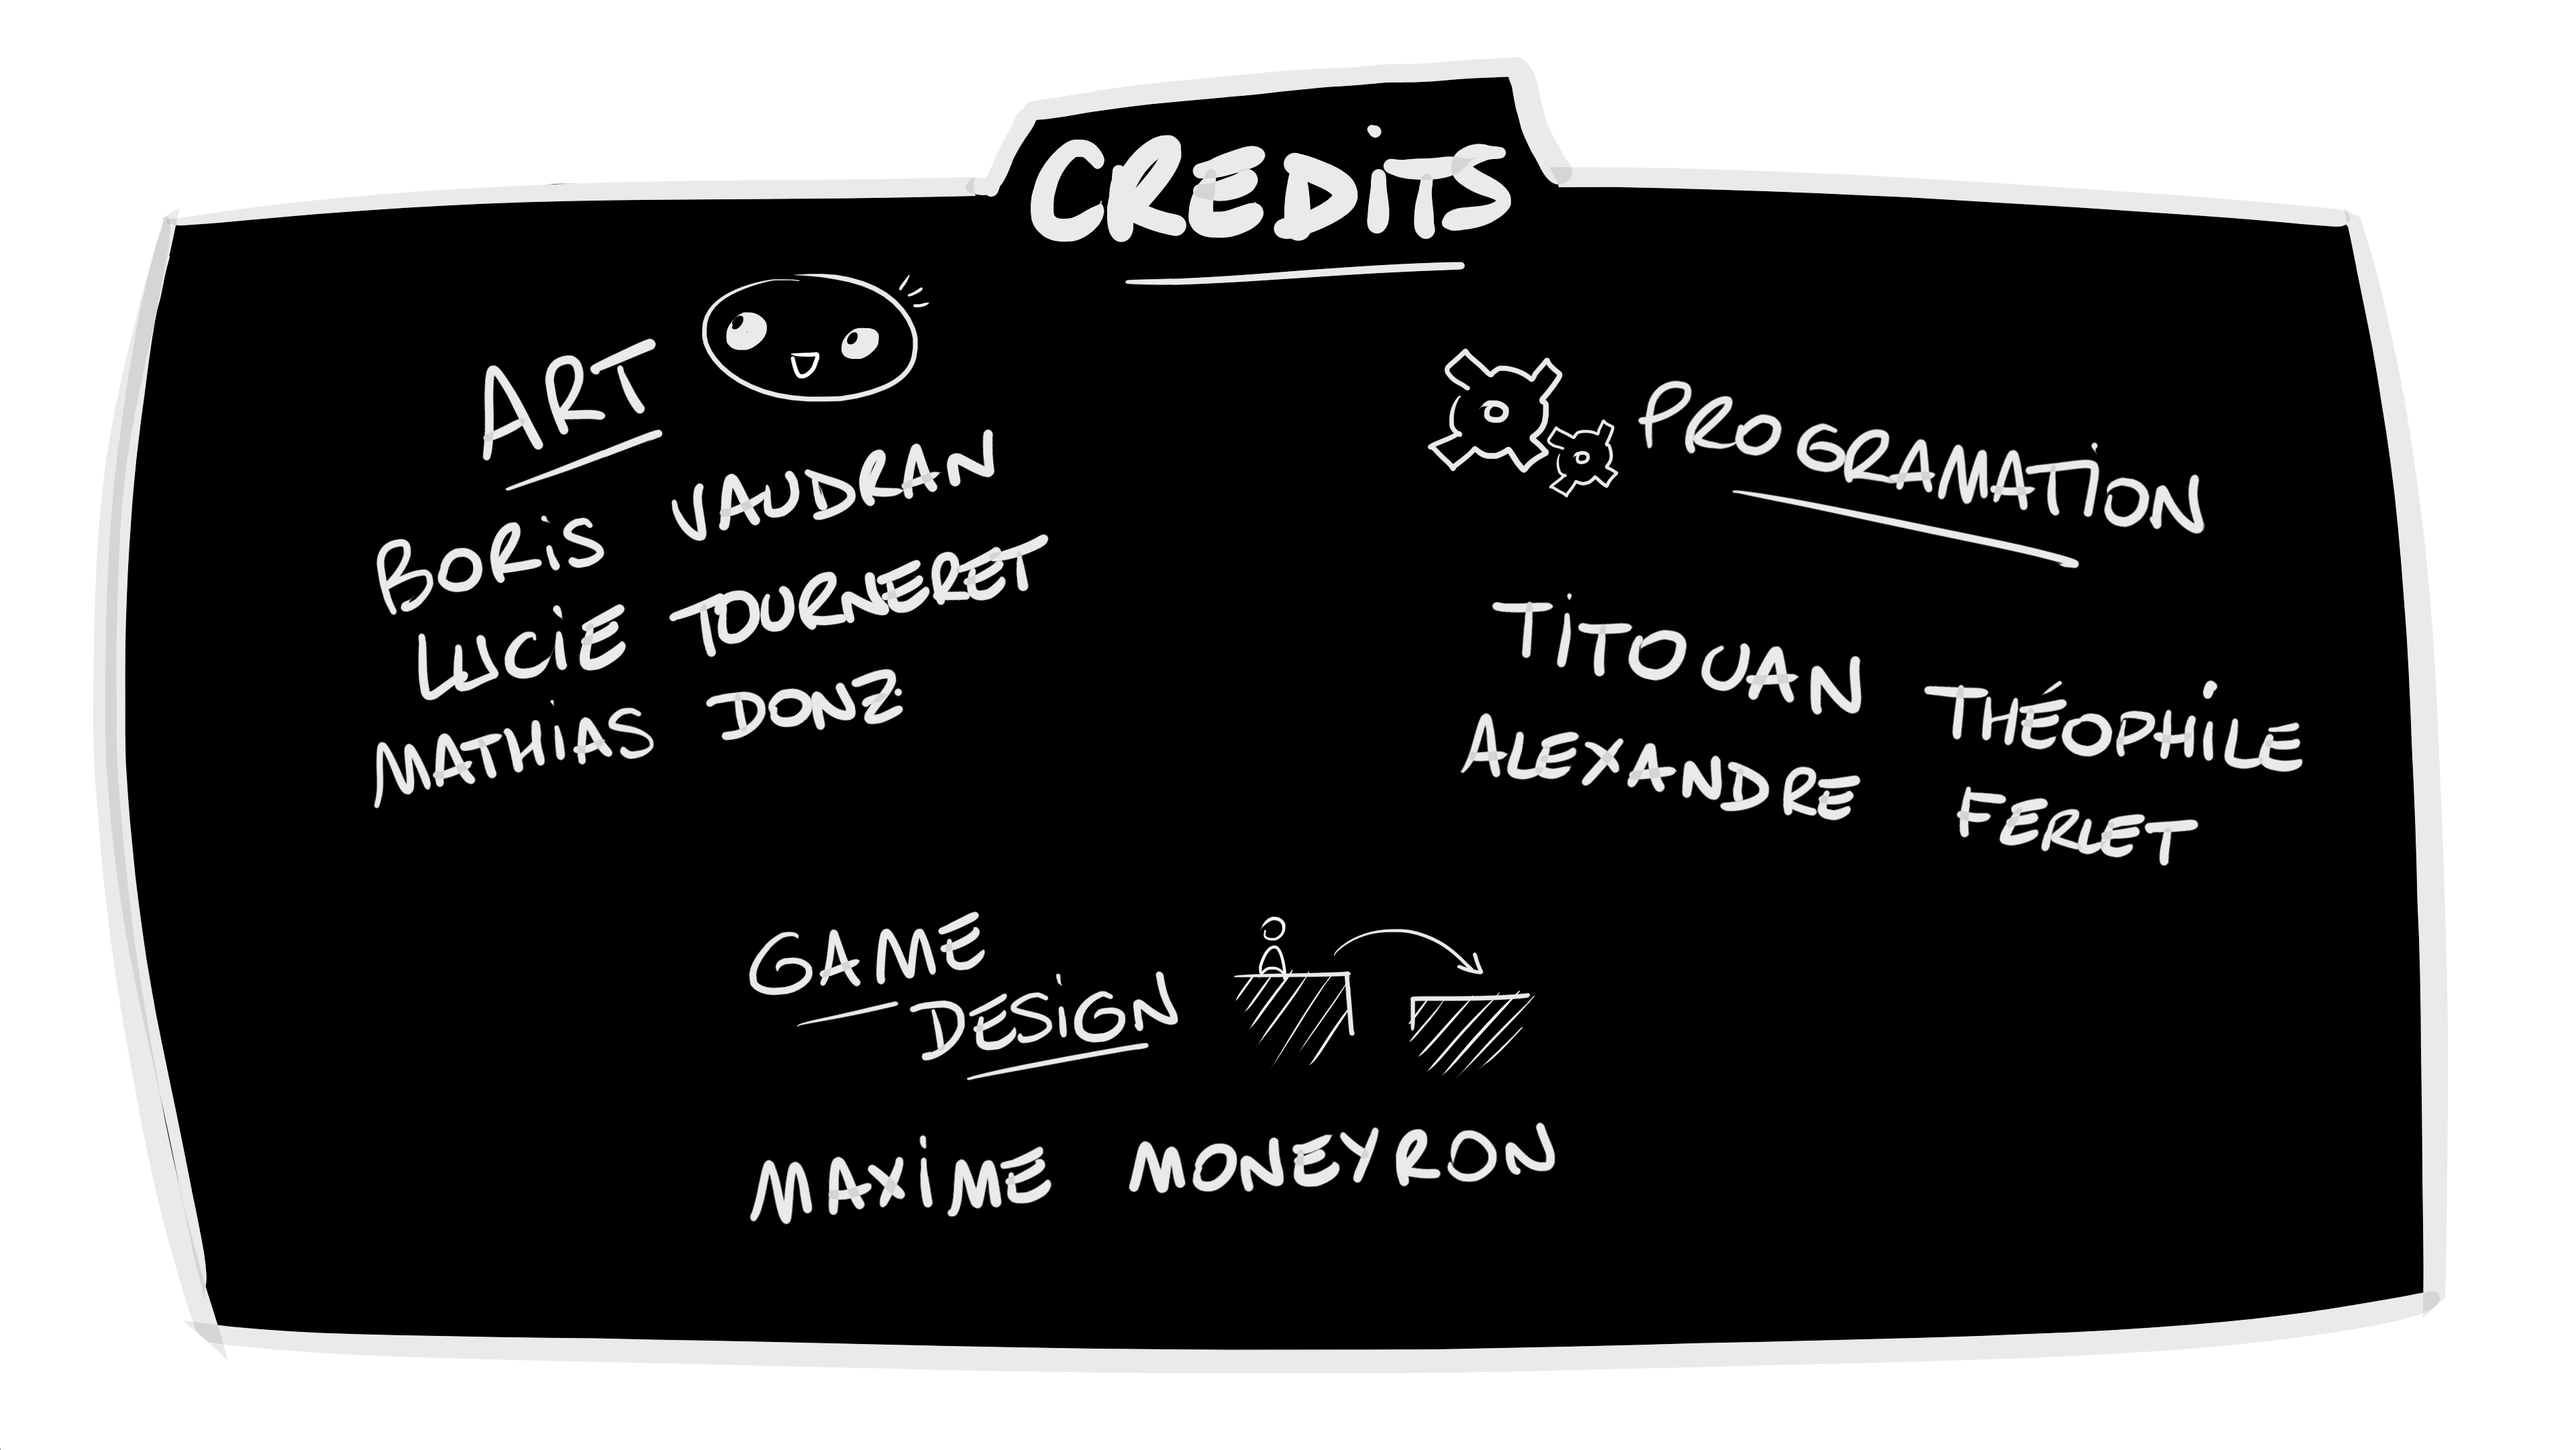 CREDiTS
ART
BORiS VAUDRAN
LUCiE TOURNERET
MATHiAS DONZ
PROGRAMATiON
TiTOUAN THÉOPHiLE
ALEXANDRE FERLET
GAME
DESiGN
MAXiME MONEYRON